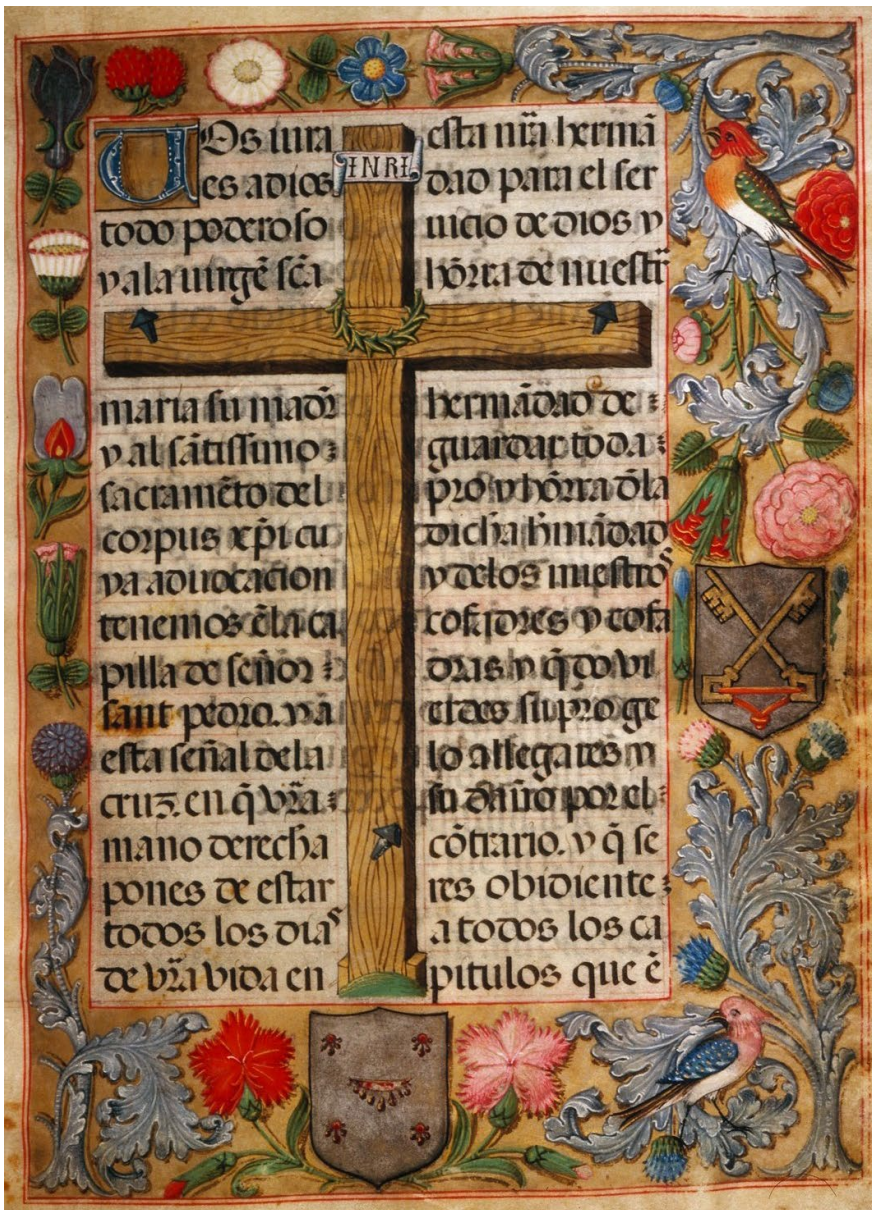 Uos iura
es adios
todo poderoso
y ala uirgẽ scã
maria su madr̃
y al sãtissimo
sacramẽto del
corpus xp̃i cu
ya aduocacion
tenemos ẽla ca
pilla de señor
sant pedro. y ã
esta señal dela
cruz. en q̃ vr̃a
mano derecha
pones de estar
todos los dias
de vr̃a vida en
INRI
esta nr̃a hermã
dad para el ser
uicio de dios y
hõrra de nuestr̃
hermãdad de
guardar toda
pro y hõrra d̃la
dicha hm̃ãdad
y delos nuestros
cofrades y cofa
dras y q̃ do vi
erdes su pro ge
lo allegares y
su dãño por el
cõtrario. y q̃ se
res obidiente
a todos los ca
pitulos que ẽ